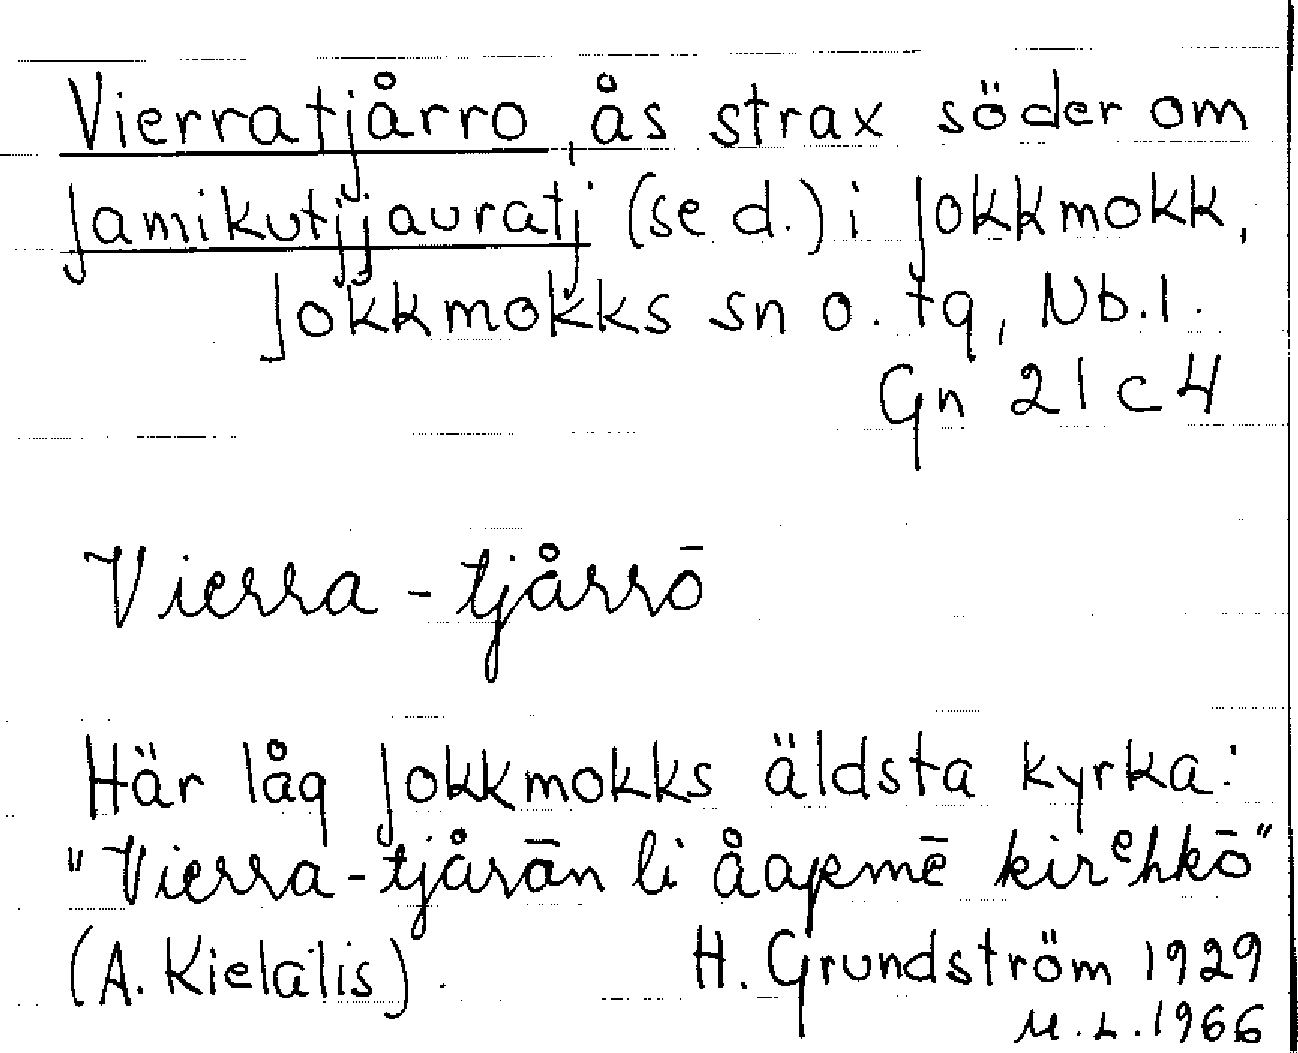 Vierratjårro, ås strax söder om
Jamikutjjauratj (se d.) i Jokkmokk,
Jokkmokks sn o. tg, Nb. l.
Gn 21 c 4
Vierra - tjårrō
Här låg Jokkmokks äldsta kyrka:
"Vierra - tjårān li åapmē kirᵉhkō"
(A. Kielatis)
H. Grundström 1929
M. L. 1966